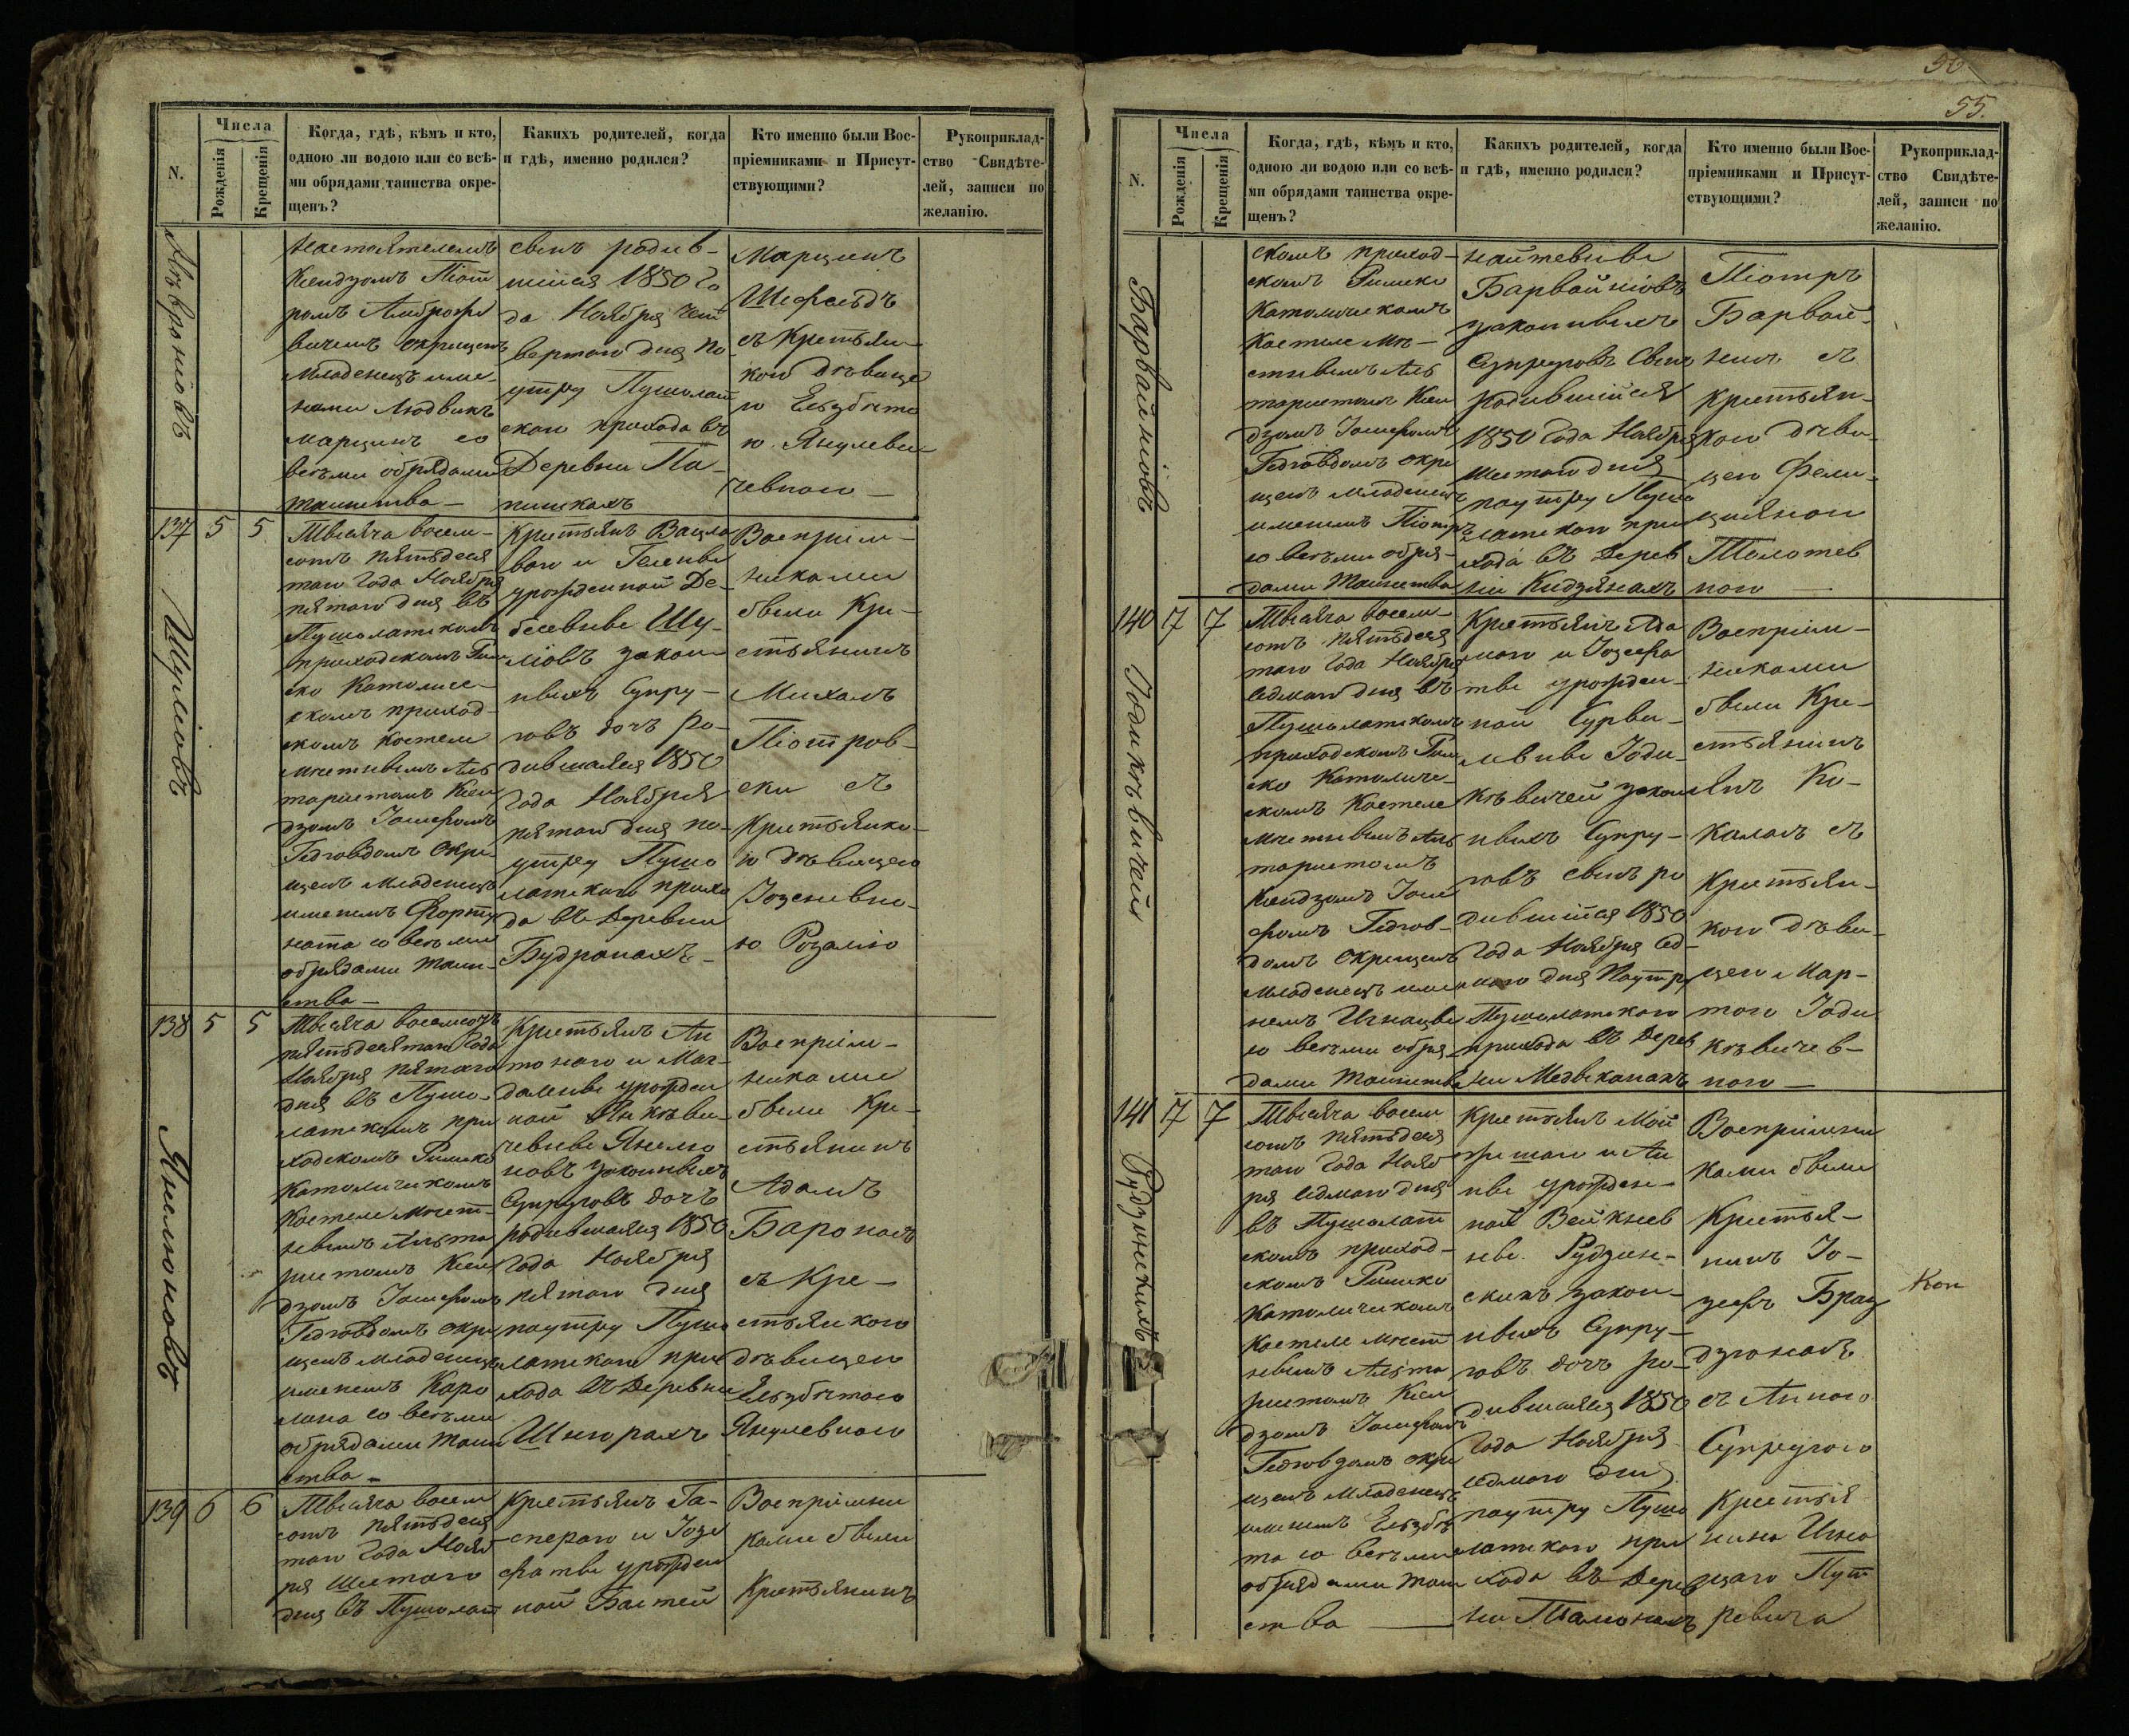 N.
Числа
Рожденія
Крещенія
Когда, гдѣ, кѣмъ и кто,
одною ли водою или со всѣ-
ми обрядами таинства окре-
щенъ?
Какихъ родителей, когда
и гдѣ, именно родился?
Кто именно были Вос-
пріемниками и Присут-
ствующими?
Рукоприклад-
ство Свидѣте-
лей, записи по
желанію.
Настоятелемъ
Ксендзомъ Піот
ромъ Амброже
вичемъ окрещенъ
младенецъ име-
нами Людвикъ
Марцинъ со
всѣми обрядами
таинства —
сынъ родив-
шійся 1850 го
да Ноября чет
вертаго дня по
утру Пушолат
скаго прихода въ
Деревни Па-
пишкахъ
Марцинъ
съ Крестьян-
кою дѣвице
ю Ельзбѣто
ю
137 5 5
Шуліовъ
Тысяча восем-
сотъ пятьдеся
таго года Ноября
пятаго дня въ
Пушолатскомъ
приходскомъ Рим
ско Католиче-
скомъ приход-
скомъ костели
мѣстнымъ Аль
таристомъ Ксен
дзомъ Іосифомъ
Гедговдомъ окре-
щенъ младенецъ
именемъ Форту
ната со всѣми
обрядами таин-
ства —
Крестьянъ Вацла
вого и Гелены
урожденной Де-
бесевны Шу-
ліовъ закон
ныхъ Супру-
говъ дочь ро-
дившаяся 1850
года Ноября
пятаго дня по-
утру Пушо
латскаго прихо
да въ деревни
Будронахъ —
Воспріем-
никами
были Кре-
стьянинъ
Михалъ
Піотров-
ски съ
Крестьянко-
ю дѣвицею
ю Розалію
138 5 5
Янелюновъ
Тысяча восемсотъ
пятьдесятаго года
Ноября пятаго
дня въ Пушо-
латскомъ при
ходскомъ Римско
Католическомъ
Костели мѣст-
нымъ Альта
ристомъ Ксен
дзомъ Іосифомъ
Гедговдомъ окре
щенъ младенецъ
именемъ Каро
лина со всѣми
обрядами таин
ства —
Крестьянъ Ан
тонаго и Маг-
далены урожден
ной Янкѣви-
чевны Янелю
новъ законныхъ
Супруговъ дочь
родившаяся 1850
года Ноября
пятаго дня
поутру Пушо
латскаго при
хода въ Деревни
Шнорахъ
Воспріем-
никами
были Кре-
стьянинъ
Адамъ
Баронасъ
съ Кре-
стьянкою
дѣвицею
Ельзбѣтою
Янулевною
139 6 6
Тысяча восем
сотъ пятьдеся
таго года Нояб
ря шестаго
дня въ Пушолат
Крестьянъ Га-
спераго и Іозе
фаты урожден
ной Бастей
Воспріемни
ками были
Крестьянинъ
55.
N.
Числа
Рожденія
Крещенія
Когда, гдѣ, кѣмъ и кто,
одною ли водою или со всѣ-
ми обрядами таинства окре-
щенъ?
Какихъ родителей, когда
и гдѣ, именно родился?
Кто именно были Вос-
пріемниками и Присут-
ствующими?
Рукоприклад-
ство Свидѣте-
лей, записи по
желанію.
Барвайніовъ
скомъ приход-
скомъ Римско
Католическомъ
Костеле мѣ-
стнымъ Аль
таристомъ Ксен
дзомъ Іосифомъ
Гедговдомъ окре
щенъ младенецъ
именемъ Піотръ
со всѣми обря-
дами таинства
Барвайніовъ
законныхъ
Супруговъ сынъ
родившійся
1850 года Ноября
шестаго дня
поутру Пушо
латскаго при
хода въ Дерев
ни Кидзянахъ
Піотръ
Барвой-
нисъ съ
крестьян-
кою дѣви-
цею Фели-
ціяною
140 7 7
Іодикѣвичей
Тысяча восем-
сотъ пятьдеся
таго года Ноября
седмаго дня въ
Пушолатскомъ
приходскомъ Рим
ско Католиче-
скомъ Костеле
мѣстнымъ Аль
таристомъ
Ксендзомъ Іоси
фомъ Гедгов-
домъ окрещенъ
младенецъ име
немъ Игнацы
со всѣми обря-
дами таинства
Крестьянъ Ада
маго и Іозефа
ты урожден-
ной Сурви-
лывны Іоди-
кѣвичей закон
ныхъ Супру-
говъ сынъ ро
дившійся 1850
года Ноября сед-
маго дня поутру
Пушолатскаго
прихода въ Дерев
ни Медыканахъ
Воспріем-
никами
были Кре-
стьянинъ
Янъ Ка-
каласъ съ
Крестьян-
кою дѣви-
цею Мар-
тою Іоди
кѣвичев-
ною —
141 7 7
Рудзинскихъ
Тысяча восем
сотъ пятьдеся
таго года Нояб
ря седмаго дня
въ Пушолат
скомъ приход-
скомъ Римско
Католическомъ
Костеле мѣст
нымъ Альта
ристомъ Ксен
дзомъ Іосифомъ
Гедговдомъ окре
щенъ младенецъ
именемъ Ельзбѣ
та со всѣми
обрядами таин
ства —
Крестьянъ Мой
жешаго и Ан
ны урожден-
ной Вейкнев
ны Рудзин-
скихъ закон-
ныхъ Супру-
говъ дочь ро-
дившаяся 1850
года Ноября
седмаго дня
поутру Пушо
латскаго при
хода въ Дерев
ни
Воспріемни
ками были
Крестья-
нинъ Іо-
зефъ Брац
дзюнасъ
съ Анною
Супругою
Крестья
нина Игна
цаго Пут
ревича
Кон